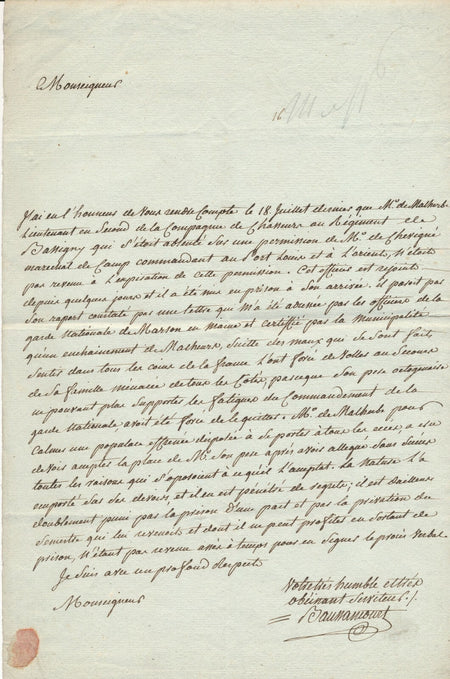 Monseigneur
J'ai eu l'honneur de Vous rendre Compte le 18. Juillet dernier que Mr. de Malherbe
Lieutenant en Second de la Compagnie de Chasseurs au Régiment de
Bassigny qui s'étoit absenté Sur une permission de Mr. de Chevigné
marechal de Camp commandant au Port Louis et à L'orient, n'étoit
pas revenu à L'expiration de cette permission. Cet officier est rejoint
depuis quelques jours et il a été mis en prison à Son arrivée. il paroit par
Son raport constaté par une lettre qui m'a été adressée par les officiers de la
garde Nationale de Marson en Maine et certiffié par la Municipalité
qu'un enchainement de Malheurs, Suitte des maux qui Se Sont fait
Sentir dans tous les coins de la france L'ont forcé de Voller au Secours
de Sa famille ménacée de tous les Cotés, parceque Son pere octogenaire
ne pouvant plus Supporter les fatigues du Commandement de la
garde Nationale avoit été forcé de le quitter. Mr. de Malherbe pour
Calmer une populace effrenée disposée à Se porter à tous les excès, a cru
devoir remplir la place de Mr. Son pere après avoir allegué Sans Succès
toutes les raisons qui S'oposoient à ce qu'il L'acceptat. La Nature L'a
emporté Sur Ses devoirs, et il en est pénétré de regrets; il est d'ailleurs
doublement puni par la prison D'une part et par la privation du
Semestre qui lui revenoit et dont il ne peut profiter en Sortant de
prison, N'étant pas revenu assés à temps pour en Signer le procès Verbal.
Je Suis avec un profond respect
Monseigneur
Votre très humble et très
obeissant Serviteur